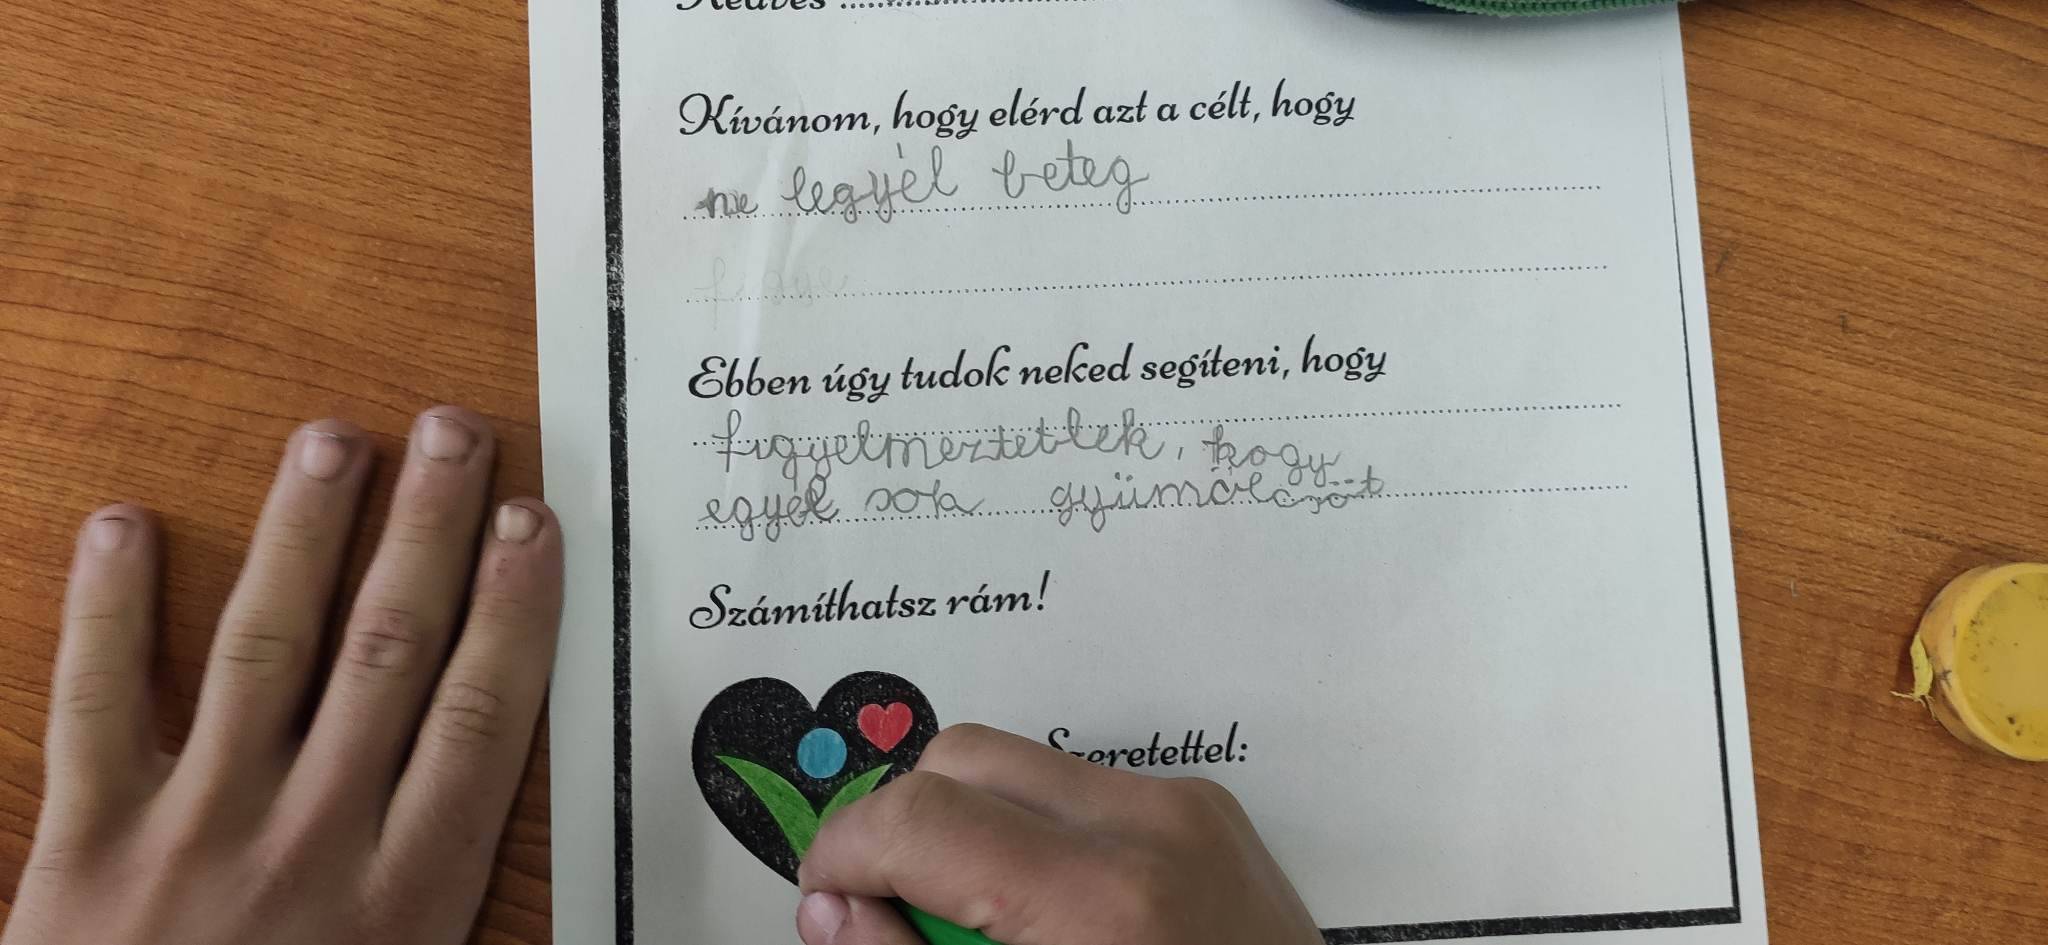 Kedves ..............................
Kívánom, hogy elérd azt a célt, hogy
ne legyél beteg
figye
Ebben úgy tudok neked segíteni, hogy
figyelmeztetlek, hogy
egyél sok gyümölcsöt
Számíthatsz rám!
Szeretettel: